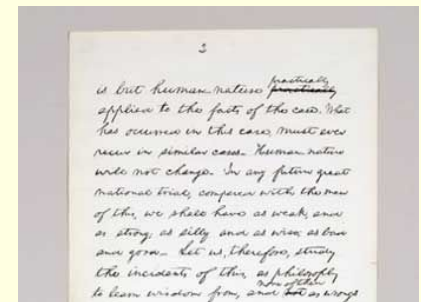 2
practically
is but human nature practically
applied to the facts of the case. What
has occurred in this case, must ever
recur in similar cases. Human nature
will not change. In any future great
national trial, compared with the men
of this, we shall have as weak, and
as strong; as silly and as wise; as bad
and good. Let us, therefore, study
the incidents of this, as philosophy
none of them
to learn wisdom from, and not as wrongs